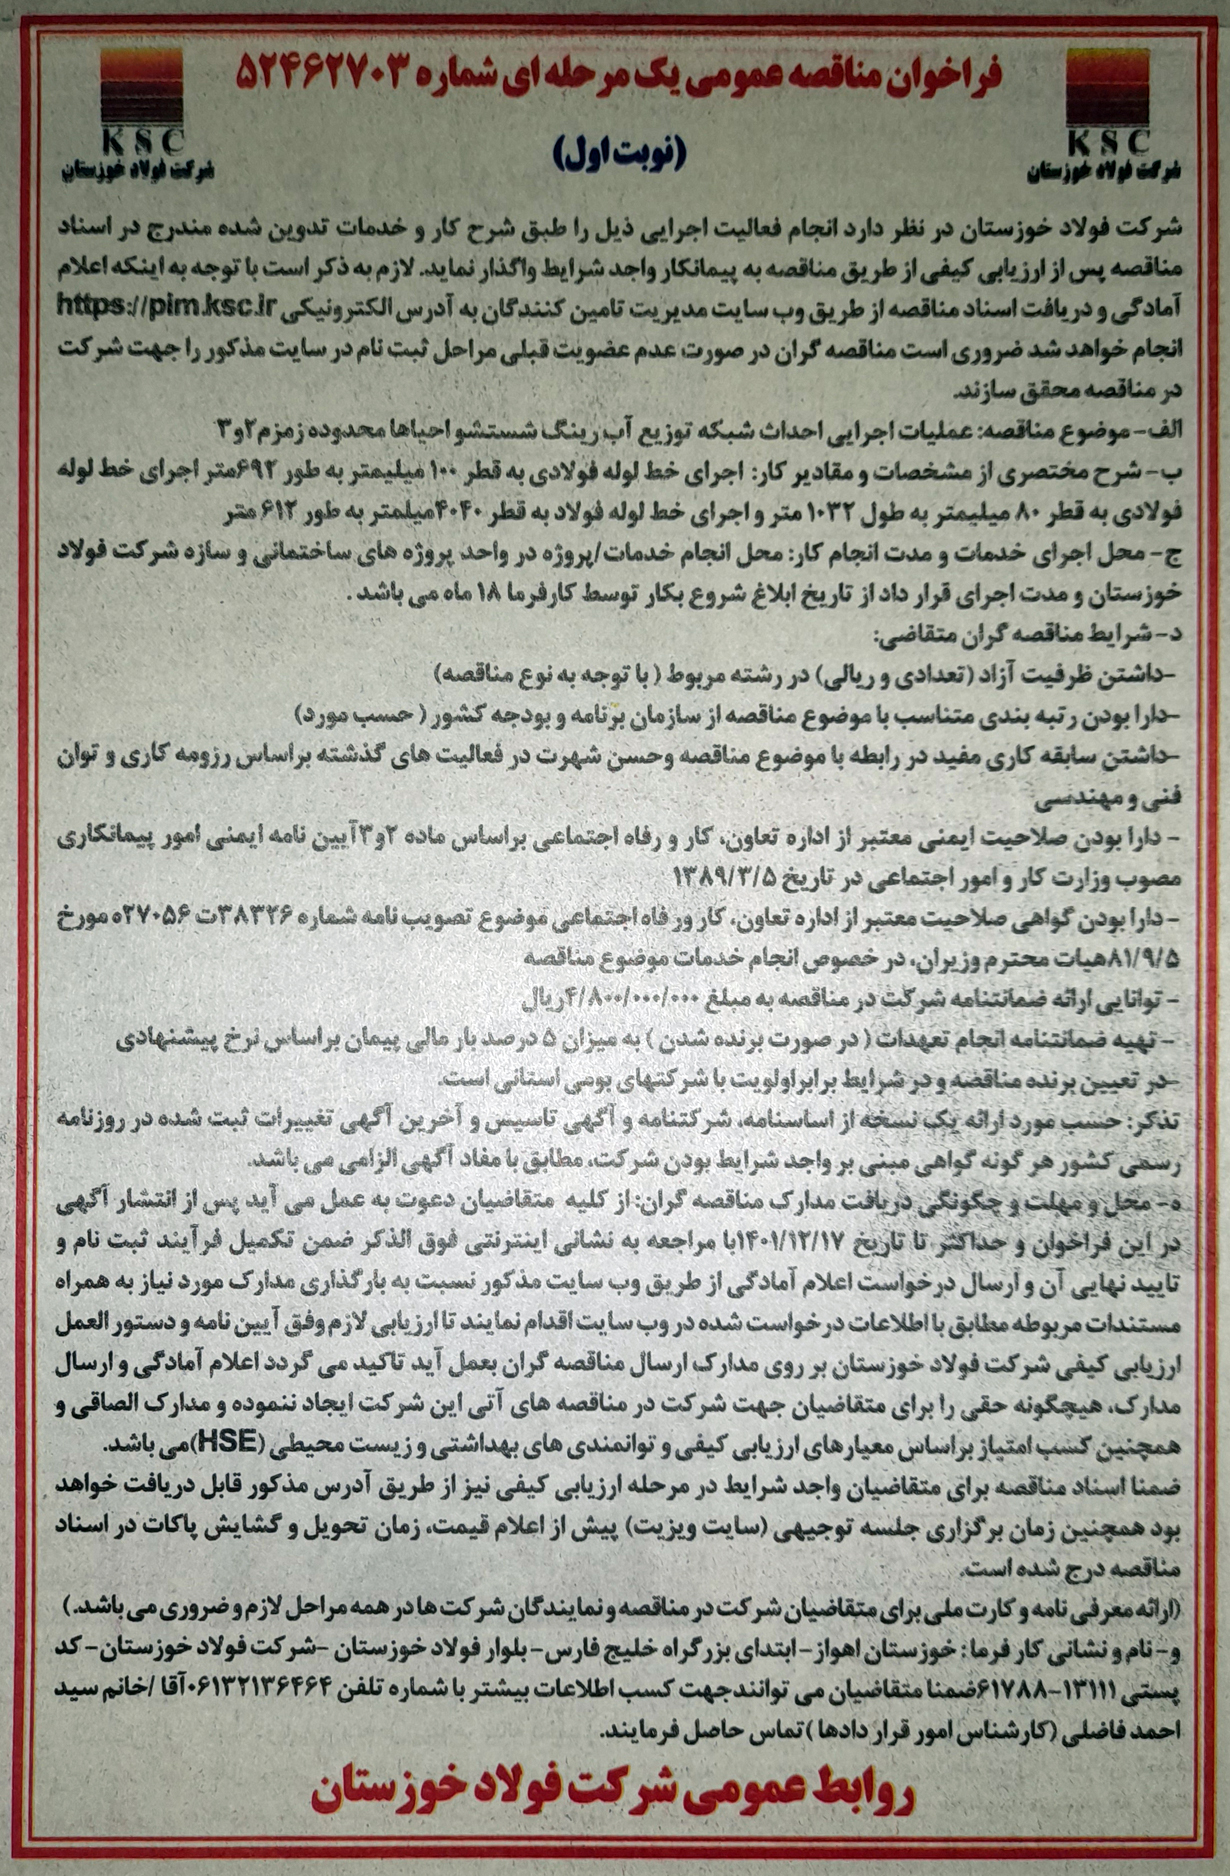 فراخوان مناقصه عمومی یک مرحله ای شماره ۵۲۴۶۲۷۰۳
(نوبت اول)
KSC
شرکت فولاد خوزستان
KSC
شرکت فولاد خوزستان
شرکت فولاد خوزستان در نظر دارد انجام فعالیت اجرایی ذیل را طبق شرح کار و خدمات تدوین شده مندرج در اسناد
مناقصه پس از ارزیابی کیفی از طریق مناقصه به پیمانکار واجد شرایط واگذار نماید. لازم به ذکر است با توجه به اینکه اعلام
آمادگی و دریافت اسناد مناقصه از طریق وب سایت مدیریت تامین کنندگان به آدرس الکترونیکی https://pim.ksc.ir
انجام خواهد شد ضروری است مناقصه گران در صورت عدم عضویت قبلی مراحل ثبت نام در سایت مذکور را جهت شرکت
در مناقصه محقق سازند.
الف- موضوع مناقصه: عملیات اجرایی احداث شبکه توزیع آب رینگ شستشو احیاها محدوده زمزم۲و۳
ب- شرح مختصری از مشخصات و مقادیر کار: اجرای خط لوله فولادی به قطر ۱۰۰ میلیمتر به طور ۶۹۲متر اجرای خط لوله
فولادی به قطر ۸۰ میلیمتر به طول ۱۰۳۲ متر و اجرای خط لوله فولاد به قطر ۴۰۴۰میلمتر به طور ۶۱۲ متر
ج- محل اجرای خدمات و مدت انجام کار: محل انجام خدمات/پروژه در واحد پروژه های ساختمانی و سازه شرکت فولاد
خوزستان و مدت اجرای قرار داد از تاریخ ابلاغ شروع بکار توسط کارفرما ۱۸ ماه می باشد .
د- شرایط مناقصه گران متقاضی:
-داشتن ظرفیت آزاد (تعدادی و ریالی) در رشته مربوط ( با توجه به نوع مناقصه)
-دارا بودن رتبه بندی متناسب با موضوع مناقصه از سازمان برنامه و بودجه کشور ( حسب مورد)
-داشتن سابقه کاری مفید در رابطه با موضوع مناقصه وحسن شهرت در فعالیت های گذشته براساس رزومه کاری و توان
فنی و مهندسی
- دارا بودن صلاحیت ایمنی معتبر از اداره تعاون، کار و رفاه اجتماعی براساس ماده ۲و۳آیین نامه ایمنی امور پیمانکاری
مصوب وزارت کار و امور اجتماعی در تاریخ ۱۳۸۹/۳/۵
- دارا بودن گواهی صلاحیت معتبر از اداره تعاون، کار ور فاه اجتماعی موضوع تصویب نامه شماره ۳۸۳۲۶ت ۲۷۰۵۶ه مورخ
۸۱/۹/۵هیات محترم وزیران، در خصوص انجام خدمات موضوع مناقصه
- توانایی ارائه ضمانتنامه شرکت در مناقصه به مبلغ ۴/۸۰۰/۰۰۰/۰۰۰ریال
- تهیه ضمانتنامه انجام تعهدات ( در صورت برنده شدن ) به میزان ۵ درصد بار مالی پیمان براساس نرخ پیشنهادی
-در تعیین برنده مناقصه و در شرایط برابر اولویت با شرکتهای بومی استانی است.
تذکر: حسب مورد ارائه یک نسخه از اساسنامه، شرکتنامه و آگهی تاسیس و آخرین آگهی تغییرات ثبت شده در روزنامه
رسمی کشور هر گونه گواهی مبنی بر واجد شرایط بودن شرکت، مطابق با مفاد آگهی الزامی می باشد.
ه- محل و مهلت و چگونگی دریافت مدارک مناقصه گران: از کلیه متقاضیان دعوت به عمل می آید پس از انتشار آگهی
در این فراخوان و حداکثر تا تاریخ ۱۴۰۱/۱۲/۱۷با مراجعه به نشانی اینترنتی فوق الذکر ضمن تکمیل فرآیند ثبت نام و
تایید نهایی آن و ارسال درخواست اعلام آمادگی از طریق وب سایت مذکور نسبت به بارگذاری مدارک مورد نیاز به همراه
مستندات مربوطه مطابق با اطلاعات درخواست شده در وب سایت اقدام نمایند تا ارزیابی لازم وفق آیین نامه و دستور العمل
ارزیابی کیفی شرکت فولاد خوزستان بر روی مدارک ارسال مناقصه گران بعمل آید تاکید می گردد اعلام آمادگی و ارسال
مدارک، هیچگونه حقی را برای متقاضیان جهت شرکت در مناقصه های آتی این شرکت ایجاد ننموده و مدارک الصاقی و
همچنین کسب امتیاز براساس معیارهای ارزیابی کیفی و توانمندی های بهداشتی و زیست محیطی (HSE)می باشد.
ضمنا اسناد مناقصه برای متقاضیان واجد شرایط در مرحله ارزیابی کیفی نیز از طریق آدرس مذکور قابل دریافت خواهد
بود همچنین زمان برگزاری جلسه توجیهی (سایت ویزیت) پیش از اعلام قیمت، زمان تحویل و گشایش پاکات در اسناد
مناقصه درج شده است.
(ارائه معرفی نامه و کارت ملی برای متقاضیان شرکت در مناقصه و نمایندگان شرکت ها در همه مراحل لازم و ضروری می باشد.)
و- نام و نشانی کار فرما : خوزستان اهواز- ابتدای بزرگراه خلیج فارس- بلوار فولاد خوزستان -شرکت فولاد خوزستان- کد
پستی ۱۳۱۱۱-۶۱۷۸۸ضمنا متقاضیان می توانندجهت کسب اطلاعات بیشتر با شماره تلفن ۰۶۱۳۲۱۳۶۴۶۴آقا /خانم سید
احمد فاضلی (کارشناس امور قرار دادها )تماس حاصل فرمایند.
روابط عمومی شرکت فولاد خوزستان